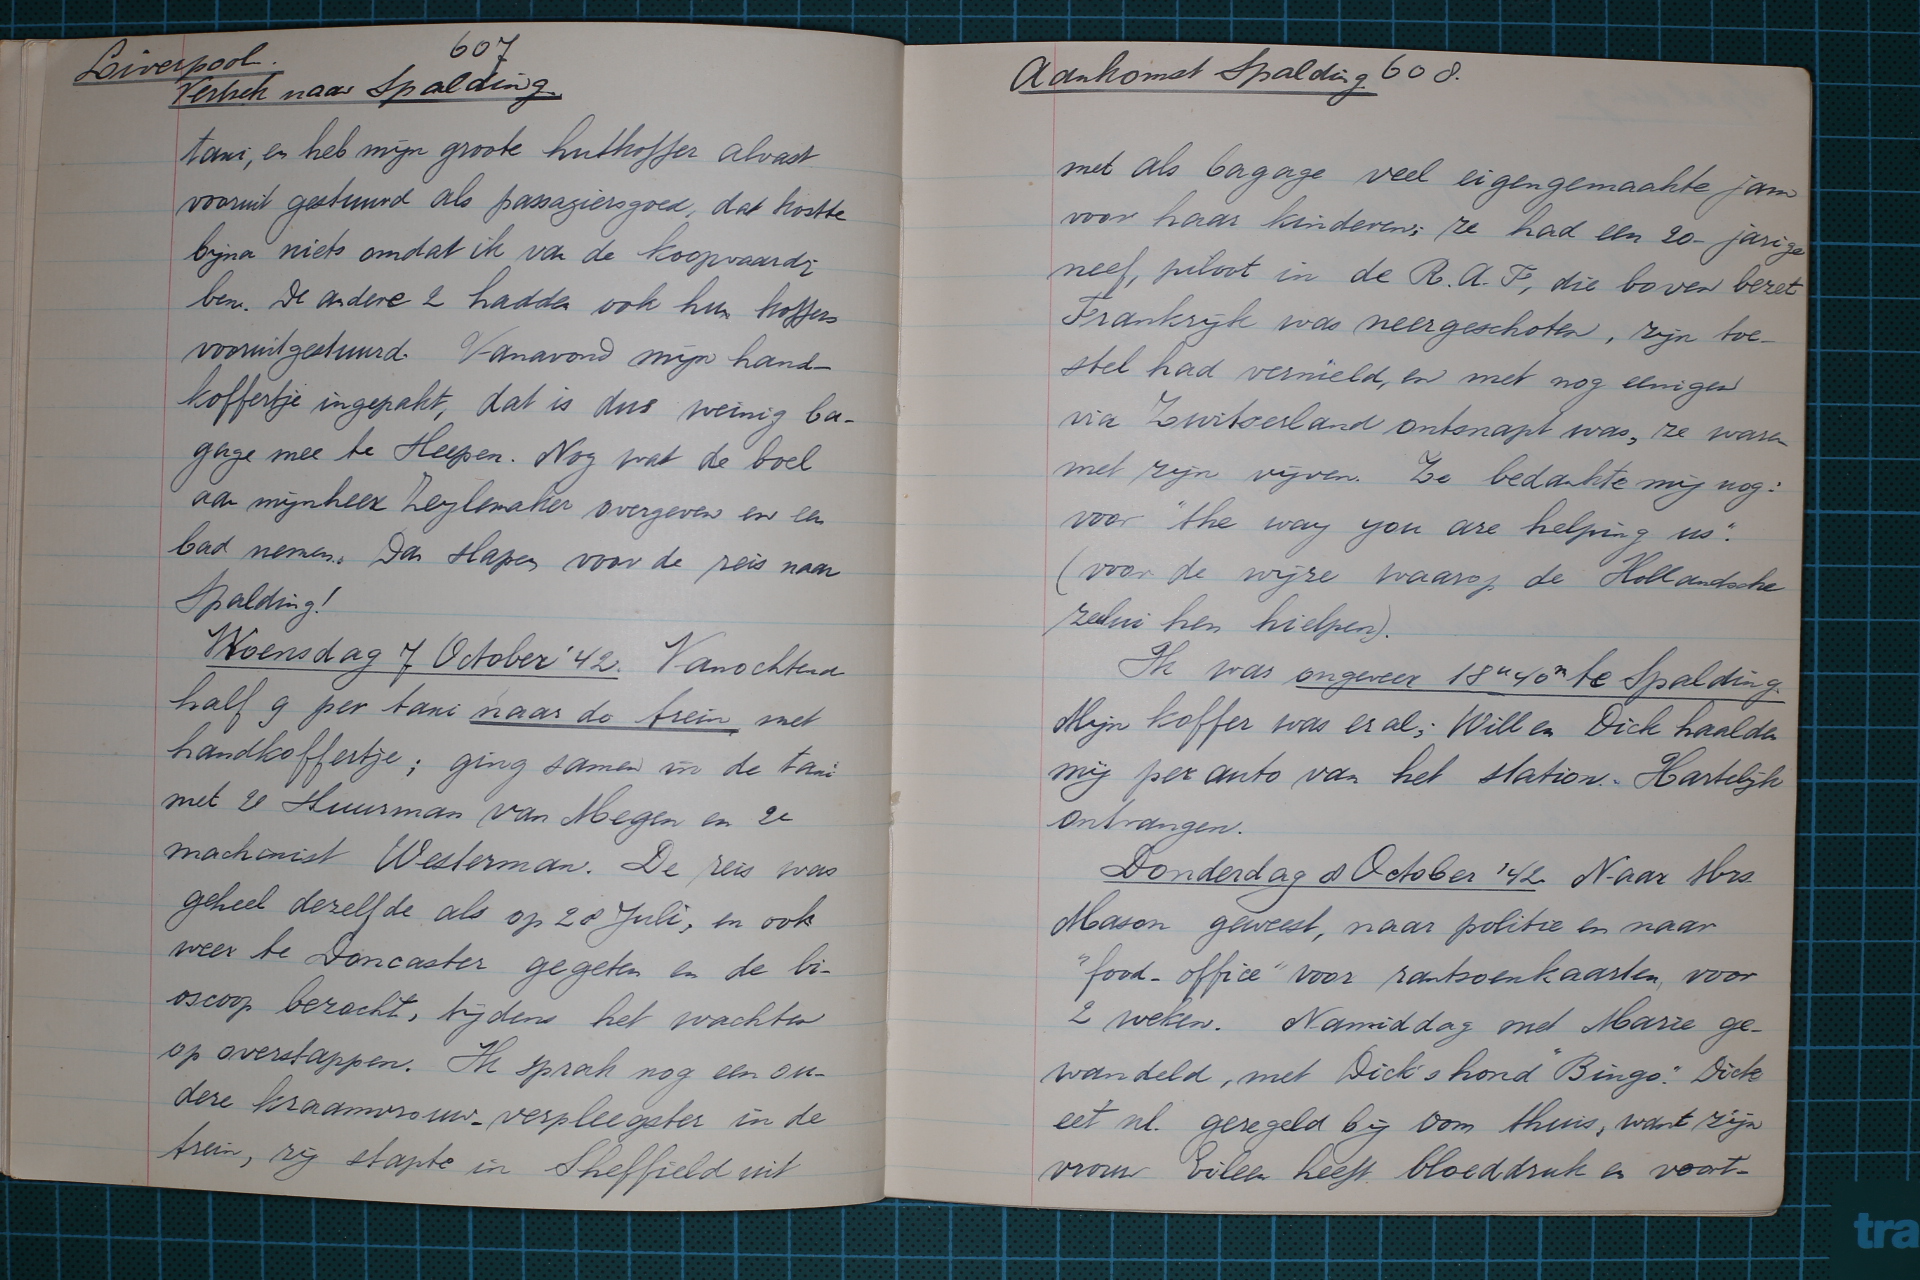 Liverpool.
607
Vertrek naar Spalding
taxi, en heb mijn groote hutkoffer alvast
vooruit gestuurd als passagiersgoed, dat kostte
bijna niets omdat ik van de koopvaardij
ben. De andere 2 hadden ook hun koffers
vooruitgestuurd. Vanavond mijn hand-
koffertje ingepakt, dat is dus weinig ba-
gage mee te sleepen. Nog wat de boel
aan mijnheer Zeylemaker overgeven en een
bad nemen. Dan slapen voor de reis naar
Spalding!
Woensdag 7 October '42. Vanochtend
half 9 per taxi naar de trein met
handkoffertje; ging samen in de taxi
met 2e stuurman van Megen en 2e
machinist Westerman. De reis was
geheel dezelfde als op 28 Juli, en ook
weer te Doncaster gegeten en de bi-
oscoop bezocht, tijdens het wachten
op overstappen. Ik sprak nog een ou-
dere kraamvrouw-verpleegster in de
trein, zij stapte in Sheffield uit
Aankomst Spalding 608.
met als bagage veel eigengemaakte jam
voor haar kinderen; ze had een 20-jarige
neef, piloot in de R.A.F, die boven bezet
Frankrijk was neergeschoten, zijn toe-
stel had vernield, en met nog eenigen
via Zwitserland ontsnapt was, ze waren
met zijn vijven. Ze bedankte mij nog:
voor "the way you are helping us".
(voor de wijze waarop de Hollandsche
zeelui hen hielpen).
Ik was ongeveer 18u40m te Spalding.
Mijn koffer was er al; Will en Dick haalden
mij per auto van het station. Hartelijk
ontvangen.
Donderdag 8 October '42. Naar Mrs
Mason geweest, naar politie en naar
"food-office" voor rantsoenkaarten, voor
2 weken. Namiddag met Marie ge-
wandeld, met Dick's hond "Bingo". Dick
eet nl. geregeld bij oom thuis, want zijn
vrouw Eileen heeft bloeddruk en voort-
tra